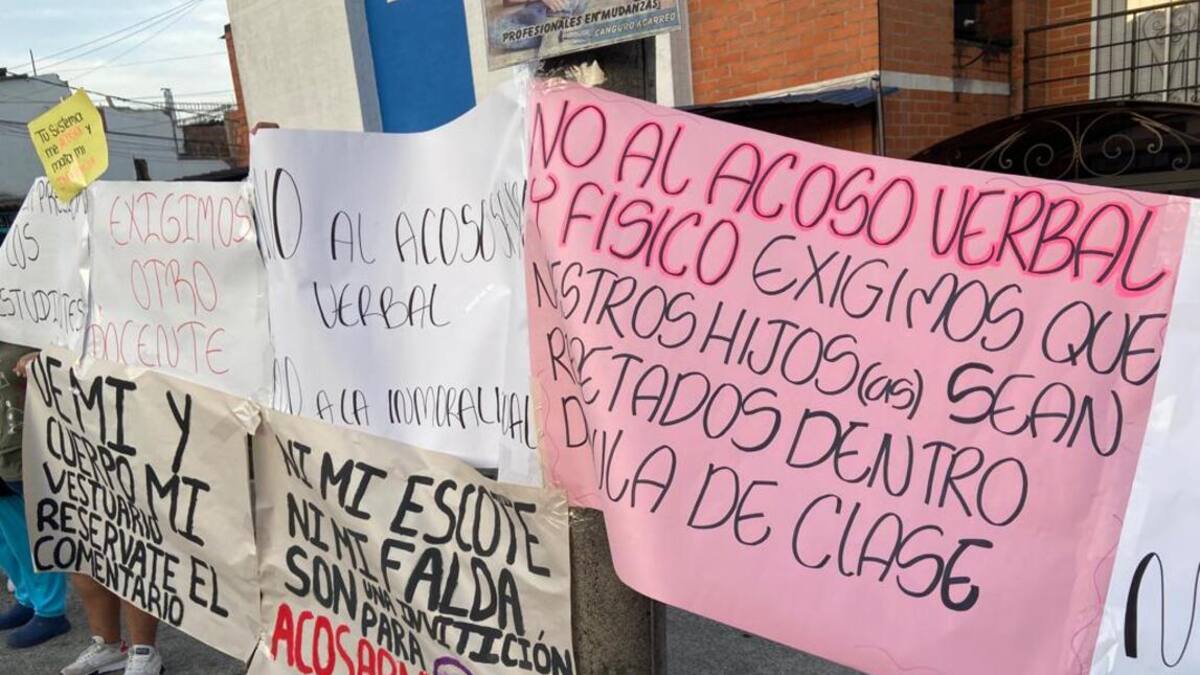 PROFESIONALES EN MUDANZAS
CANGURO ACARREO
TU SISTEMA
me ACOSA y
mata mi
LOS
ESTUDIANTES
EXIGIMOS
OTRO
DOCENTE
NO AL ACOSO
VERBAL
NO A LA INMORALIDAD
NO AL ACOSO VERBAL
Y FISICO EXIGIMOS QUE
NESTROS HIJOS(as) SEAN
RESPETADOS DENTRO
DEL AULA DE CLASE
DE MI Y
CUERPO MI
VESTUARIO
RESERVATE EL
COMENTARIO
NI MI ESCOTE
NI MI FALDA
SON UNA INVITICIÓN
PARA
ACOSARME
N